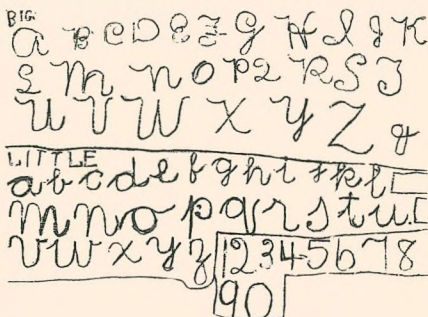 BIG
a B C D E F G H I J K
L M n O P Q R S T
U V W X Y Z g
LITTLE
a b c d e f g h i j k l
m n o p q r s t u
v w x y z 1 2 3 4 5 6 7 8
9 0